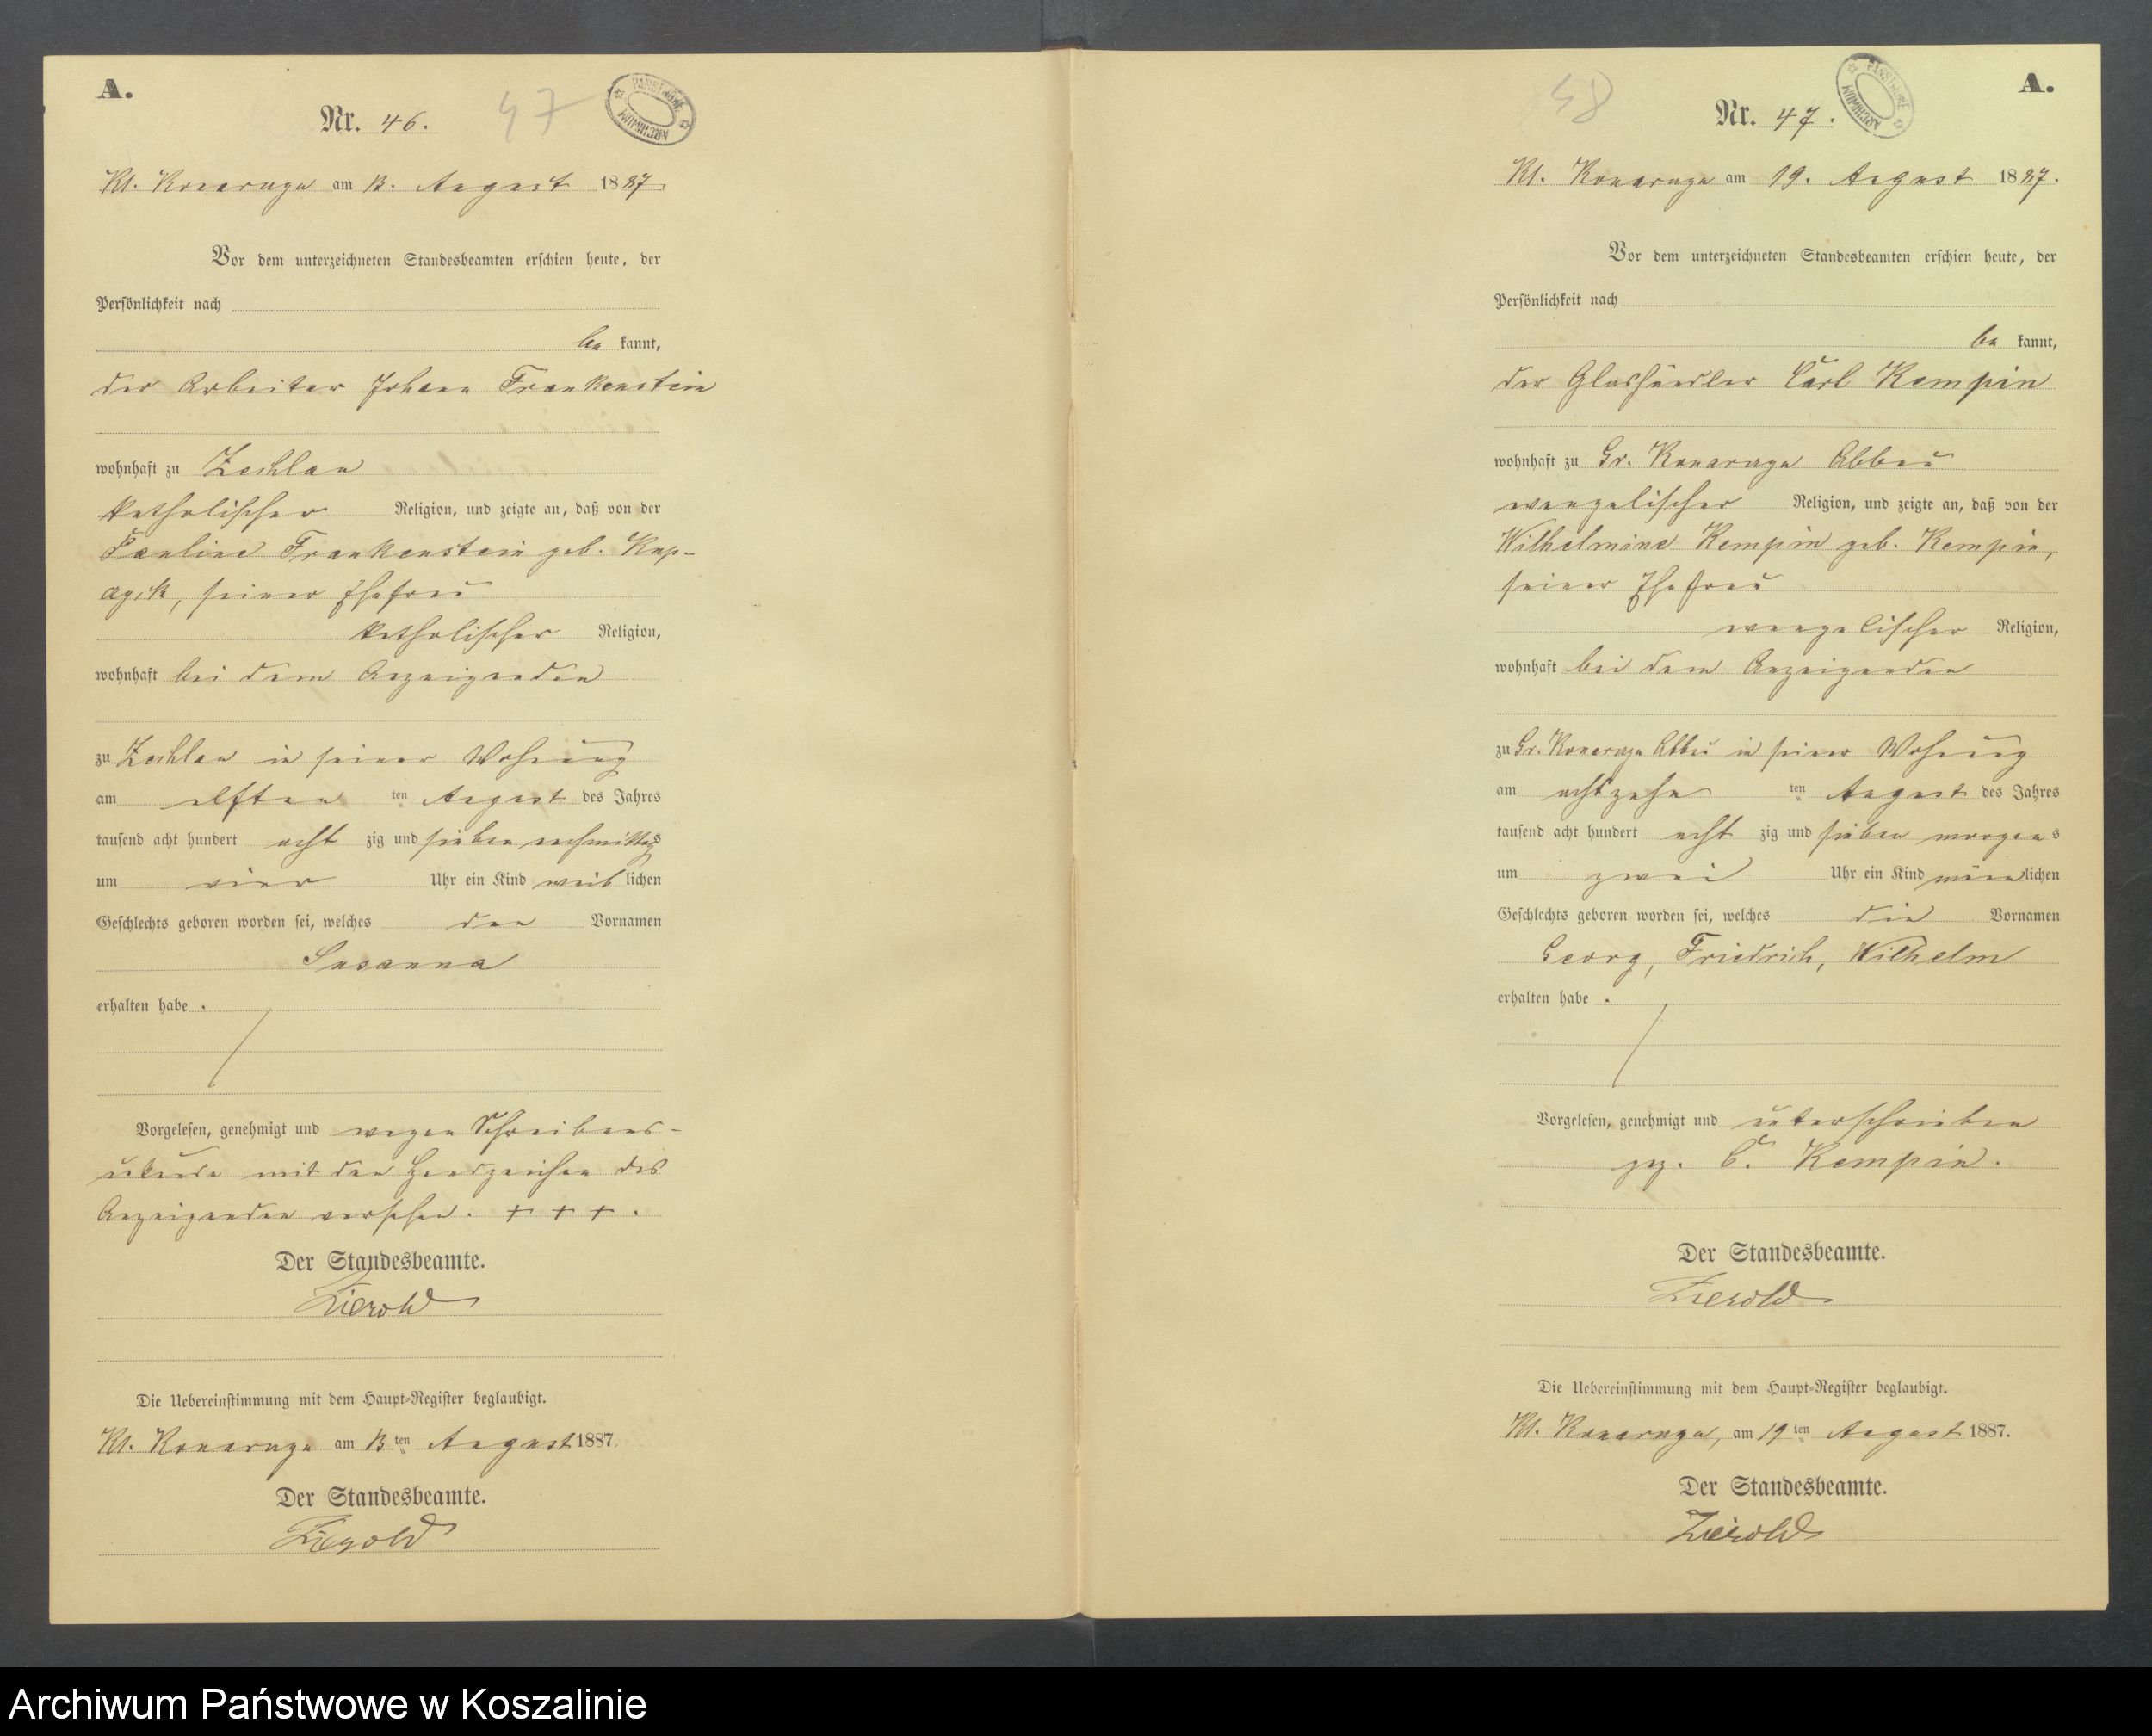 A.
Nr. 46.
47
PAŃSTWOWE ARCHIWUM
Kl. Konarczyn am 13. August 1887.
Vor dem unterzeichneten Standesbeamten erschien heute, der
Persönlichkeit nach
be kannt,
der Arbeiter Johann Frankenstein
wohnhaft zu Zechlau
katholischer Religion, und zeigte an, daß von der
Pauline Frankenstein geb.
seiner Ehefrau
katholischer Religion,
wohnhaft bei dem Anzeigenden
zu Zechlau in seiner Wohnung
am elften ten August des Jahres
tausend acht hundert acht zig und sieben nachmittags
um vier Uhr ein Kind weib lichen
Geschlechts geboren worden sei, welches den Vornamen
Susanna
erhalten habe .
Vorgelesen, genehmigt und wegen Schreibens-
unkunde mit den Handzeichen des
Anzeigenden versehen. + + + .
Der Standesbeamte.
Zierold
Die Uebereinstimmung mit dem Haupt-Register beglaubigt.
Kl. Konarczyn am 13 ten August 1887.
Der Standesbeamte.
Zierold
A.
Nr. 47.
48
PAŃSTWOWE ARCHIWUM
Kl. Konarczyn am 19. August 1887.
Vor dem unterzeichneten Standesbeamten erschien heute, der
Persönlichkeit nach
be kannt,
der Glashändler Carl Kempin
wohnhaft zu Gr. Konarczyn Abbau
evangelischer Religion, und zeigte an, daß von der
Wilhelmine Kempin geb. Kempin,
seiner Ehefrau
evangelischer Religion,
wohnhaft bei dem Anzeigenden
zu Gr. Konarczyn Abbau in seiner Wohnung
am achtzehn ten August des Jahres
tausend acht hundert acht zig und sieben morgens
um zwei Uhr ein Kind männlichen
Geschlechts geboren worden sei, welches die Vornamen
Georg, Friedrich, Wilhelm
erhalten habe .
Vorgelesen, genehmigt und unterschrieben
gez. C. Kempin.
Der Standesbeamte.
Zierold
Die Uebereinstimmung mit dem Haupt-Register beglaubigt.
Kl. Konarczyn, am 19 ten August 1887.
Der Standesbeamte.
Zierold
Archiwum Państwowe w Koszalinie